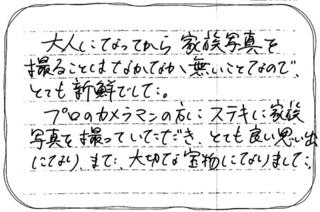 大人になってから 家族写真を
撮ることはなかなか無いことなので、
とても新鮮でした。
プロのカメラマンの方に ステキに家族
写真を撮っていただき、とても良い思い出
になり、また、大切な宝物になりました。